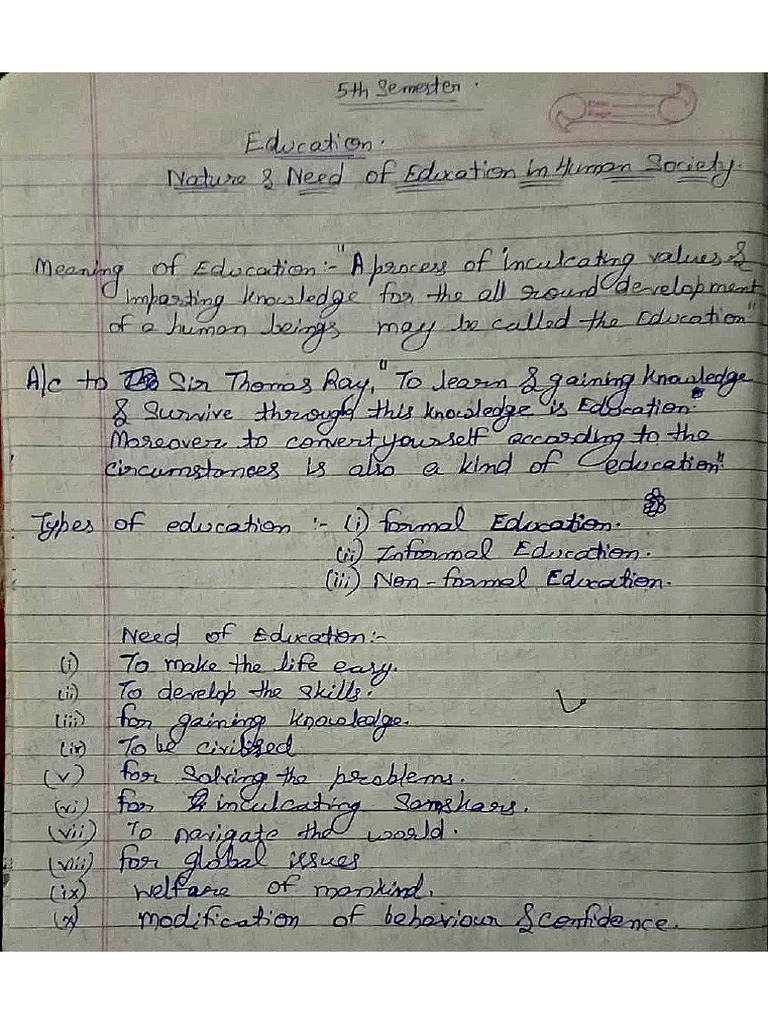 5th Semester.
Education.
Nature & Need of Education in Human Society.
Meaning of Education:- "A process of inculcating values &
imparting knowledge for the all round development
of a human beings may be called the Education"
A/c to Sir Thomas Ray, "To learn & gaining knowledge
& Survive through this knowledge is Education.
Moreover to convert yourself according to the
circumstances is also a kind of education".
Types of education :- (i) formal Education.
(ii) Informal Education.
(iii) Non-formal Education.
Need of Education:-
(i) To make the life easy.
(ii) To develop the skills.
(iii) for gaining knowledge.
(iv) To be civilised
(v) for solving the problems.
(vi) for inculcating Sanskars.
(vii) To navigate the world.
(viii) for global issues
(ix) welfare of mankind.
(x) modification of behaviour & confidence.